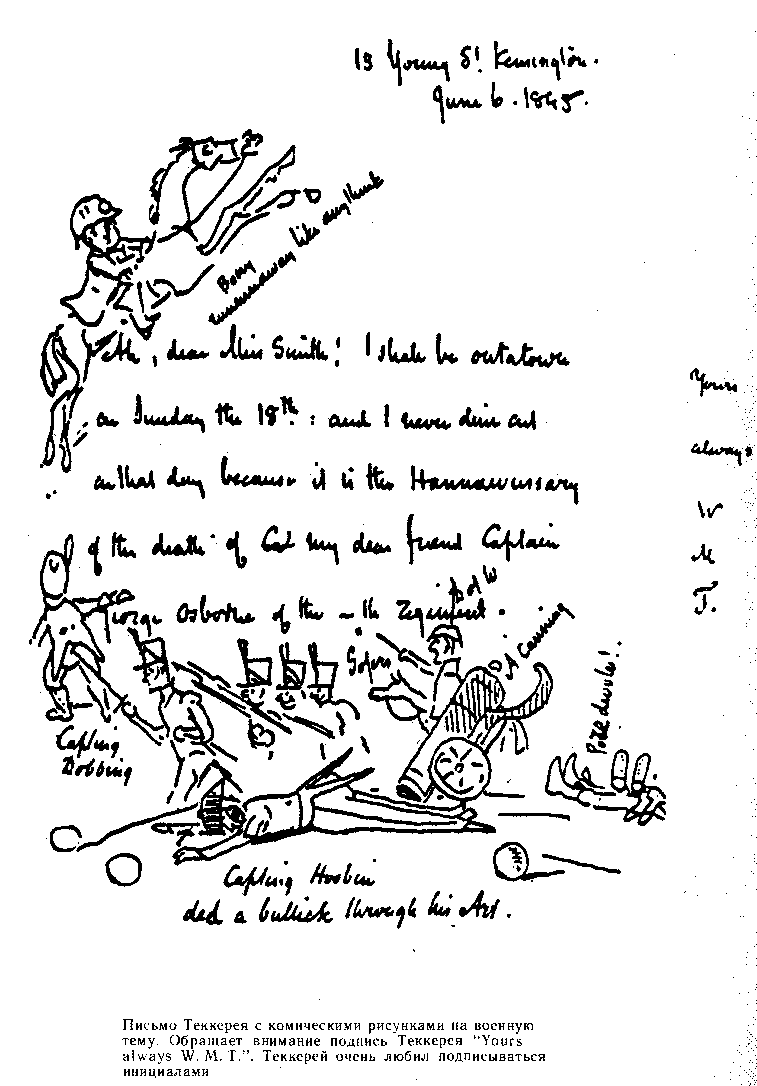 13 Young St. Kensington.
June 6. 1845.
Bony
runninaway like anythink
Ah, dear Miss Smith! I shall be outatown
on Sunday the 18th: and I never dine out
on that day because it is the Hannawussary
of the death of my dear friend Captain
George Osborne of the -th Regiment.
Yours
always
W
M
T.
D of W
A Canning
Capting
Dobbing
Capting Hosbin
ded a bullick through his Art.
Письмо Теккерея с комическими рисунками на военную
тему. Обращает внимание подпись Теккерея “Yours
always W. M. T.”. Теккерей очень любил подписываться
инициалами